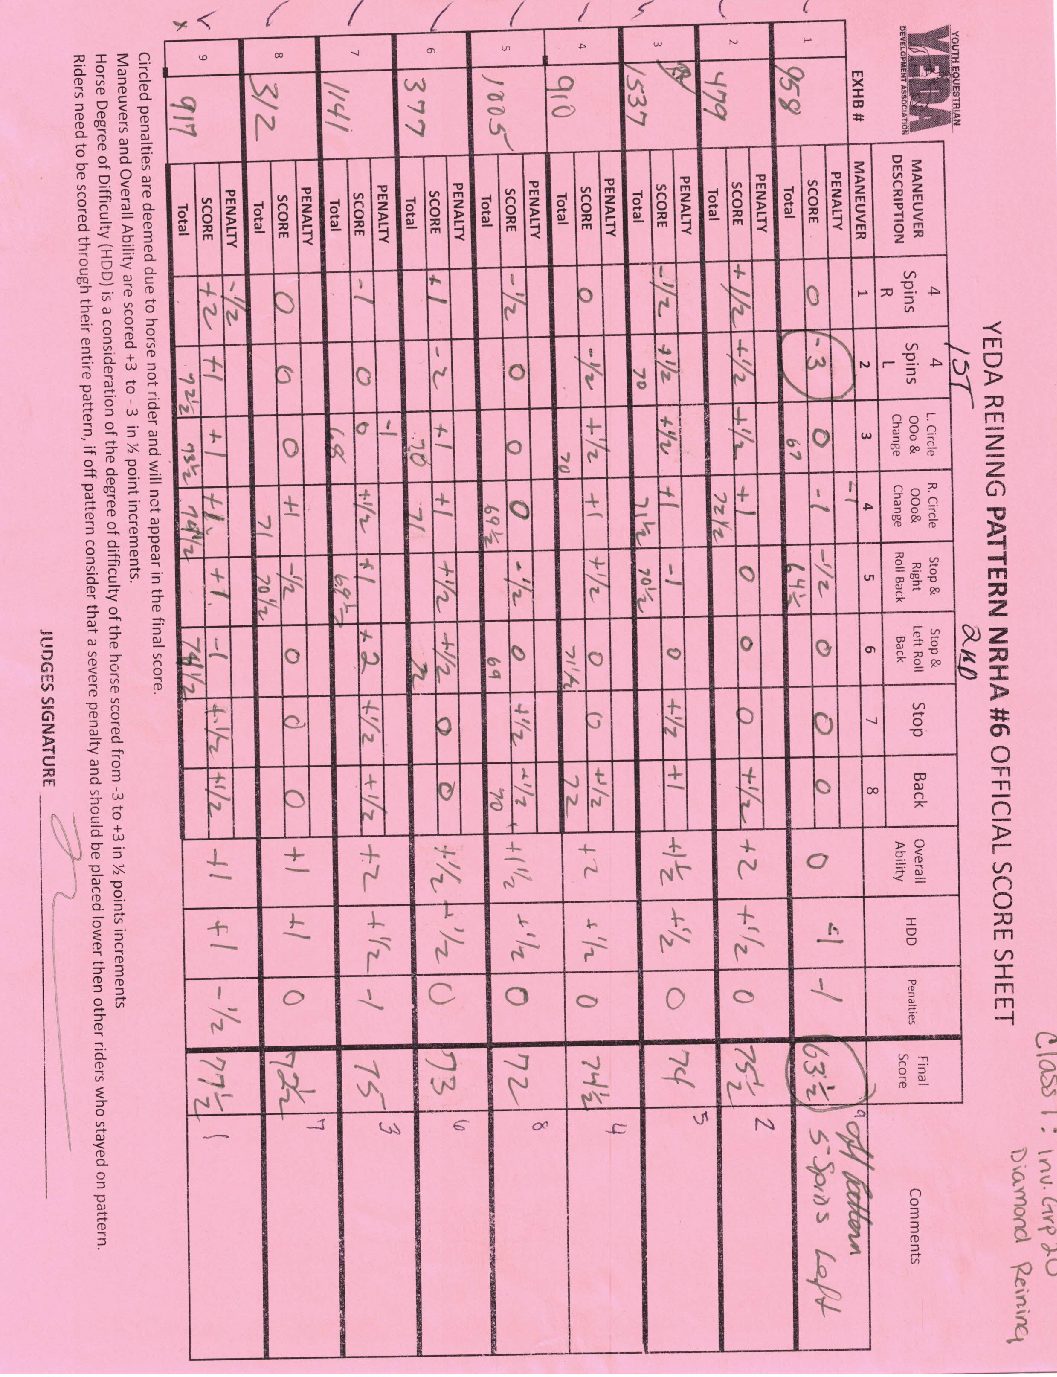 Class 1: Inv. Grp 20
Diamond Reining
YEDA REINING PATTERN NRHA #6 OFFICIAL SCORE SHEET
1ST 2ND
YOUTH EQUESTRIAN
YEDA
DEVELOPMENT ASSOCIATION
MANEUVER DESCRIPTION | 4 Spins R | 4 Spins L | L. Circle OOo & Change | R. Circle OOo& Change | Stop & Right Roll Back | Stop & Left Roll Back | Stop | Back | Overall Ability | HDD | Penalties | Final Score | Comments
EXHB # | MANEUVER | 1 | 2 | 3 | 4 | 5 | 6 | 7 | 8
1 | 958 | PENALTY | -1
SCORE | 0 | -3 | 0 | -1 | -1/2 | 0 | 0 | 0 | 0 | -1 | -1 | 63 1/2 | 9 off Pattern 5 Spins Left
Total | 67 | 64 1/2
2 | 479 | PENALTY
SCORE | +1/2 | +1/2 | +1/2 | +1 | 0 | 0 | 0 | +1/2 | +2 | +1/2 | 0 | 75 1/2 | 2
Total | 72 1/2
3 | 1537 | PENALTY
SCORE | -1/2 | +1/2 | +1/2 | +1 | -1 | 0 | +1/2 | +1 | +1 1/2 | +1/2 | 0 | 74 | 5
Total | 70 | 71 1/2 | 70 1/2
4 | 910 | PENALTY
SCORE | 0 | -1/2 | +1/2 | +1 | +1/2 | 0 | 0 | +1/2 | +2 | +1/2 | 0 | 74 1/2 | 4
Total | 70 | 71 1/2 | 72
5 | 1005 | PENALTY
SCORE | -1/2 | 0 | 0 | 0 | -1/2 | 0 | +1/2 | +1/2 | +1 1/2 | +1/2 | 0 | 72 | 8
Total | 69 1/2 | 69 | 70
6 | 377 | PENALTY
SCORE | +1 | -2 | +1 | +1 | +1/2 | +1/2 | 0 | 0 | +1/2 | +1/2 | 0 | 73 | 6
Total | 70 | 71 | 72
7 | 1141 | PENALTY | -1
SCORE | -1 | 0 | 0 | +1/2 | +1 | +2 | +1/2 | +1/2 | +2 | +1/2 | -1 | 75 | 3
Total | 68 | 69 1/2
8 | 312 | PENALTY
SCORE | 0 | 0 | 0 | +1 | -1/2 | 0 | 0 | 0 | +1 | +1 | 0 | 72 1/2 | 7
Total | 71 | 70 1/2
9 | 917 | PENALTY | -1/2
SCORE | +2 | +1 | +1 | +1 | +1 | -1 | +1/2 | +1/2 | +1 | +1 | -1/2 | 77 1/2 | 1
Total | 72 1/2 | 73 1/2 | 74 1/2 | 74 1/2
Circled penalties are deemed due to horse not rider and will not appear in the final score.
Maneuvers and Overall Ability are scored +3 to - 3 in ½ point increments.
Horse Degree of Difficulty (HDD) is a consideration of the degree of difficulty of the horse scored from -3 to +3 in ½ points increments
Riders need to be scored through their entire pattern, if off pattern consider that a severe penalty and should be placed lower then other riders who stayed on pattern.
JUDGES SIGNATURE